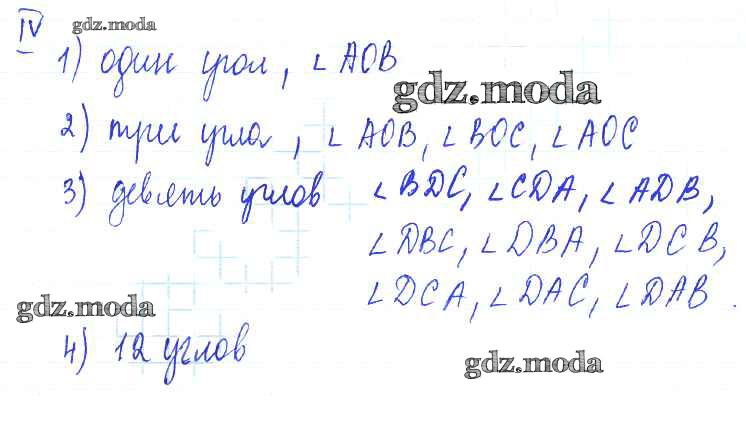 IV
gdz.moda
1) один угол, ∠AOB
gdz.moda
2) три угла, ∠AOB, ∠BOC, ∠AOC
3) девять углов ∠BDC, ∠CDA, ∠ADB,
∠DBC, ∠DBA, ∠DCB,
∠DCA, ∠DAC, ∠DAB.
gdz.moda
4) 12 углов
gdz.moda